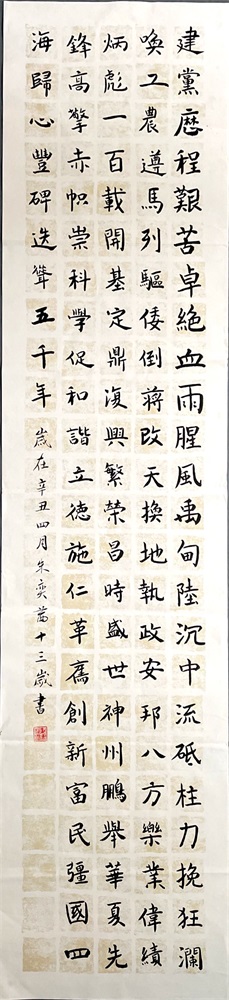 建黨歷程艱苦卓絕血雨腥風禹甸陸沉中流砥柱力挽狂瀾
喚工農遵馬列驅倭倒蔣改天換地執政安邦八方樂業偉績
炳彪一百載開基定鼎復興繁榮昌時盛世神州鵬舉華夏先
鋒高擎赤幟崇科學促和諧立德施仁革舊創新富民彊國四
海歸心豐碑迭聳五千年
歲在辛丑四月朱奕菡十三歲書